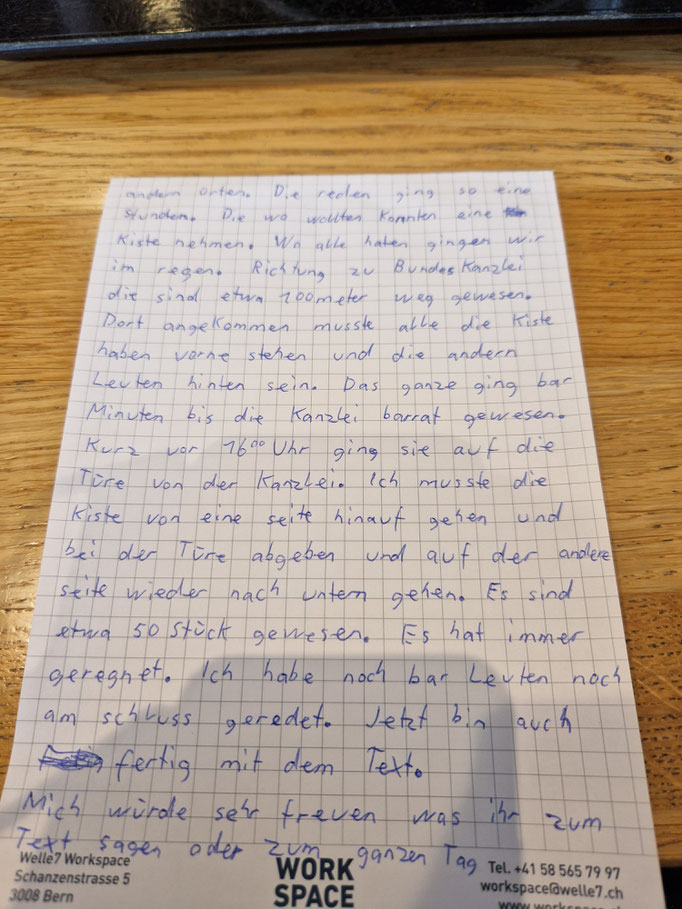 andern orten. Die reden ging so eine
stunden. Die wo wollten konnten eine
Kiste nehmen. Wo alle haben gingen wir
im regen. Richtung zu BundesKanzlei
die sind etwa 100meter weg gewesen.
Dort angekommen musste alle die Kiste
haben vorne stehen und die andern
Leuten hinten sein. Das ganze ging bar
Minuten bis die Kanzlei barrat gewesen.
Kurz vor 16⁰⁰ Uhr ging sie auf die
Türe von der Kanzlei. Ich musste die
Kiste von eine seite hinauf gehen und
bei der Türe abgeben und auf der andere
seite wieder nach untern gehen. Es sind
etwa 50 Stück gewesen. Es hat immer
geregnet. Ich habe noch bar Leuten noch
am schluss geredet. Jetzt bin auch
fertig mit dem Text.
Mich würde sehr freuen was ihr zum
Text sagen oder zum ganzen Tag
Welle7 Workspace
Schanzenstrasse 5
3008 Bern
WORK
SPACE
Tel. +41 58 565 79 97
workspace@welle7.ch